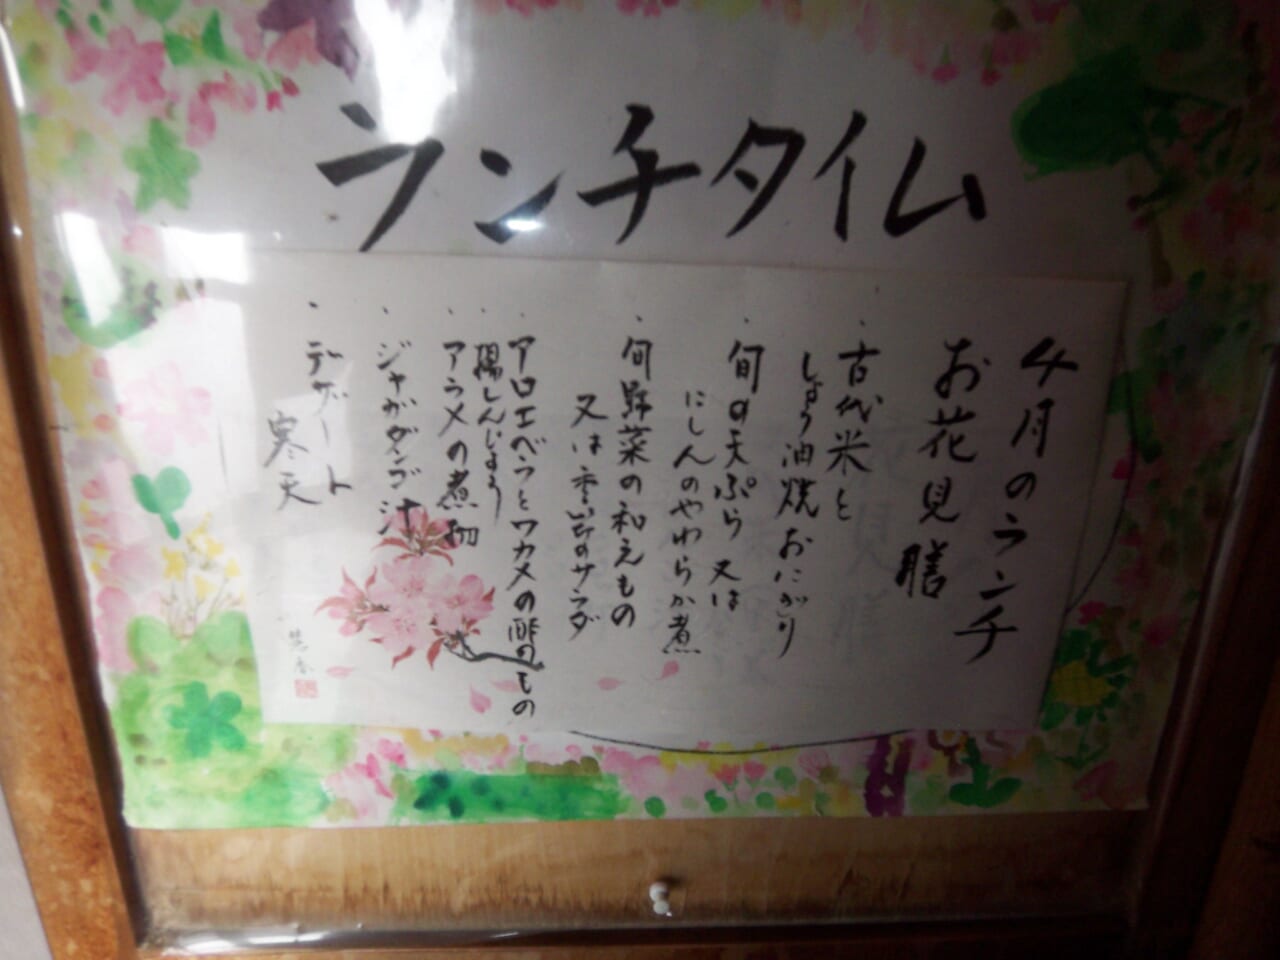 ランチタイム
4月のランチ
お花見膳
・古代米と
しょう油焼おにぎり
・旬の天ぷら又は
にしんのやわらか煮
・旬野菜の和えもの
又は のサラダ
・アロエベラとワカメの酢のもの
・揚しんじょう
・アラメの煮物
・ジャガダンゴ汁
・デザート
寒天